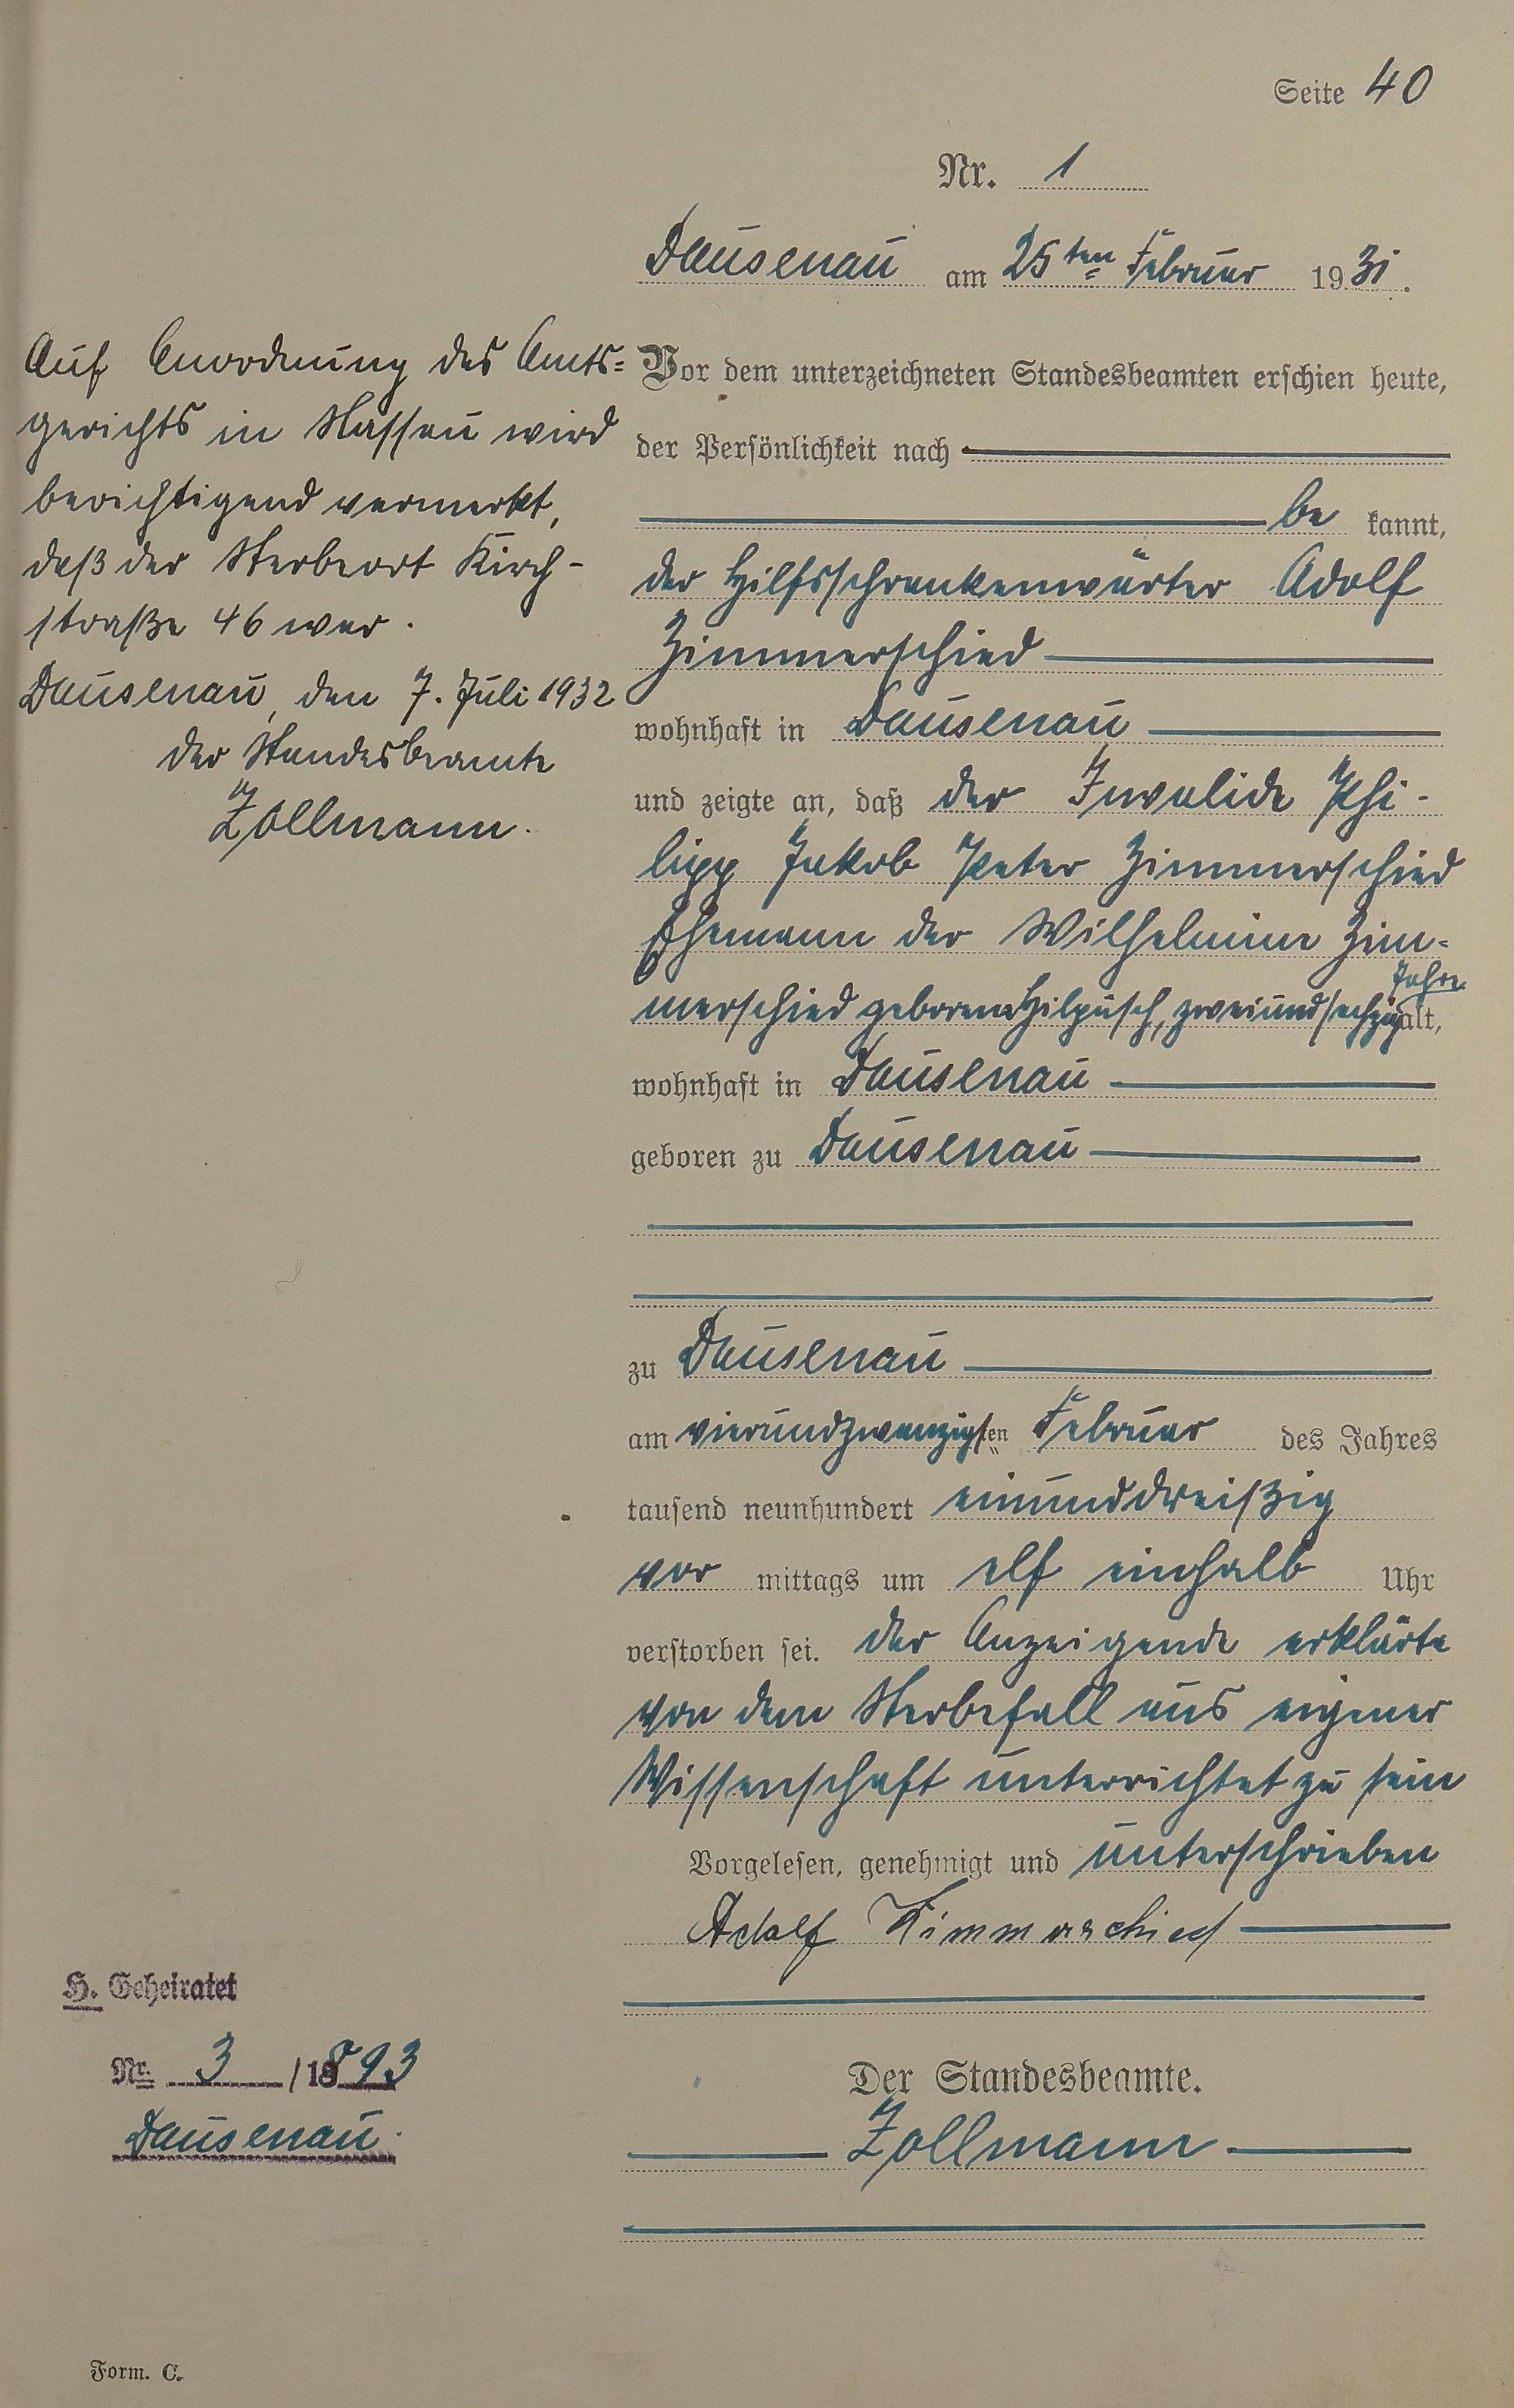 Seite 40
Nr. 1
Dausenau am 25ten Februar 1931.
Auf Anordnung des Amts=
gerichts in Nassau wird
berichtigend vermerkt,
daß der Sterbeort Kirch-
straße 46 war.
Dausenau, den 7. Juli 1932
Der Standesbeamte
Zollmann.
Vor dem unterzeichneten Standesbeamten erschien heute,
der Persönlichkeit nach
be kannt,
der Hilfsschrankenwärter Adolf
Zimmerschied
wohnhaft in Dausenau
und zeigte an, daß der Invalide Phi-
lipp Jakob Peter Zimmerschied
Ehemann der Wilhelmine Zim=
merschied geborene Hilpüsch, zweiundsechzig Jahre alt,
wohnhaft in Dausenau
geboren zu Dausenau
zu Dausenau
am vierundzwanzigsten Februar des Jahres
tausend neunhundert einunddreißig
vor mittags um elf einhalb Uhr
verstorben sei. Der Anzeigende erklärte
von dem Sterbefall aus eigener
Wissenschaft unterrichtet zu sein
Vorgelesen, genehmigt und unterschrieben
Adolf Zimmerschied
Der Standesbeamte.
Zollmann
H. Geheiratet
Nr. 3 / 1893
Dausenau.
Form. C.